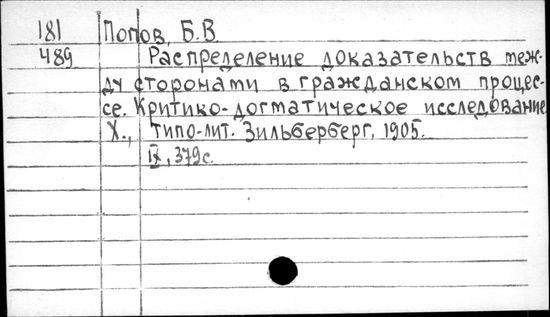 181 Попов, Б.В
489 Распределение доказательств меж-
ду сторонами в гражданском процес-
се. Критико-догматическое исследование
Х., типо-лит. Зильберберг, 1905.
IX, 379с.